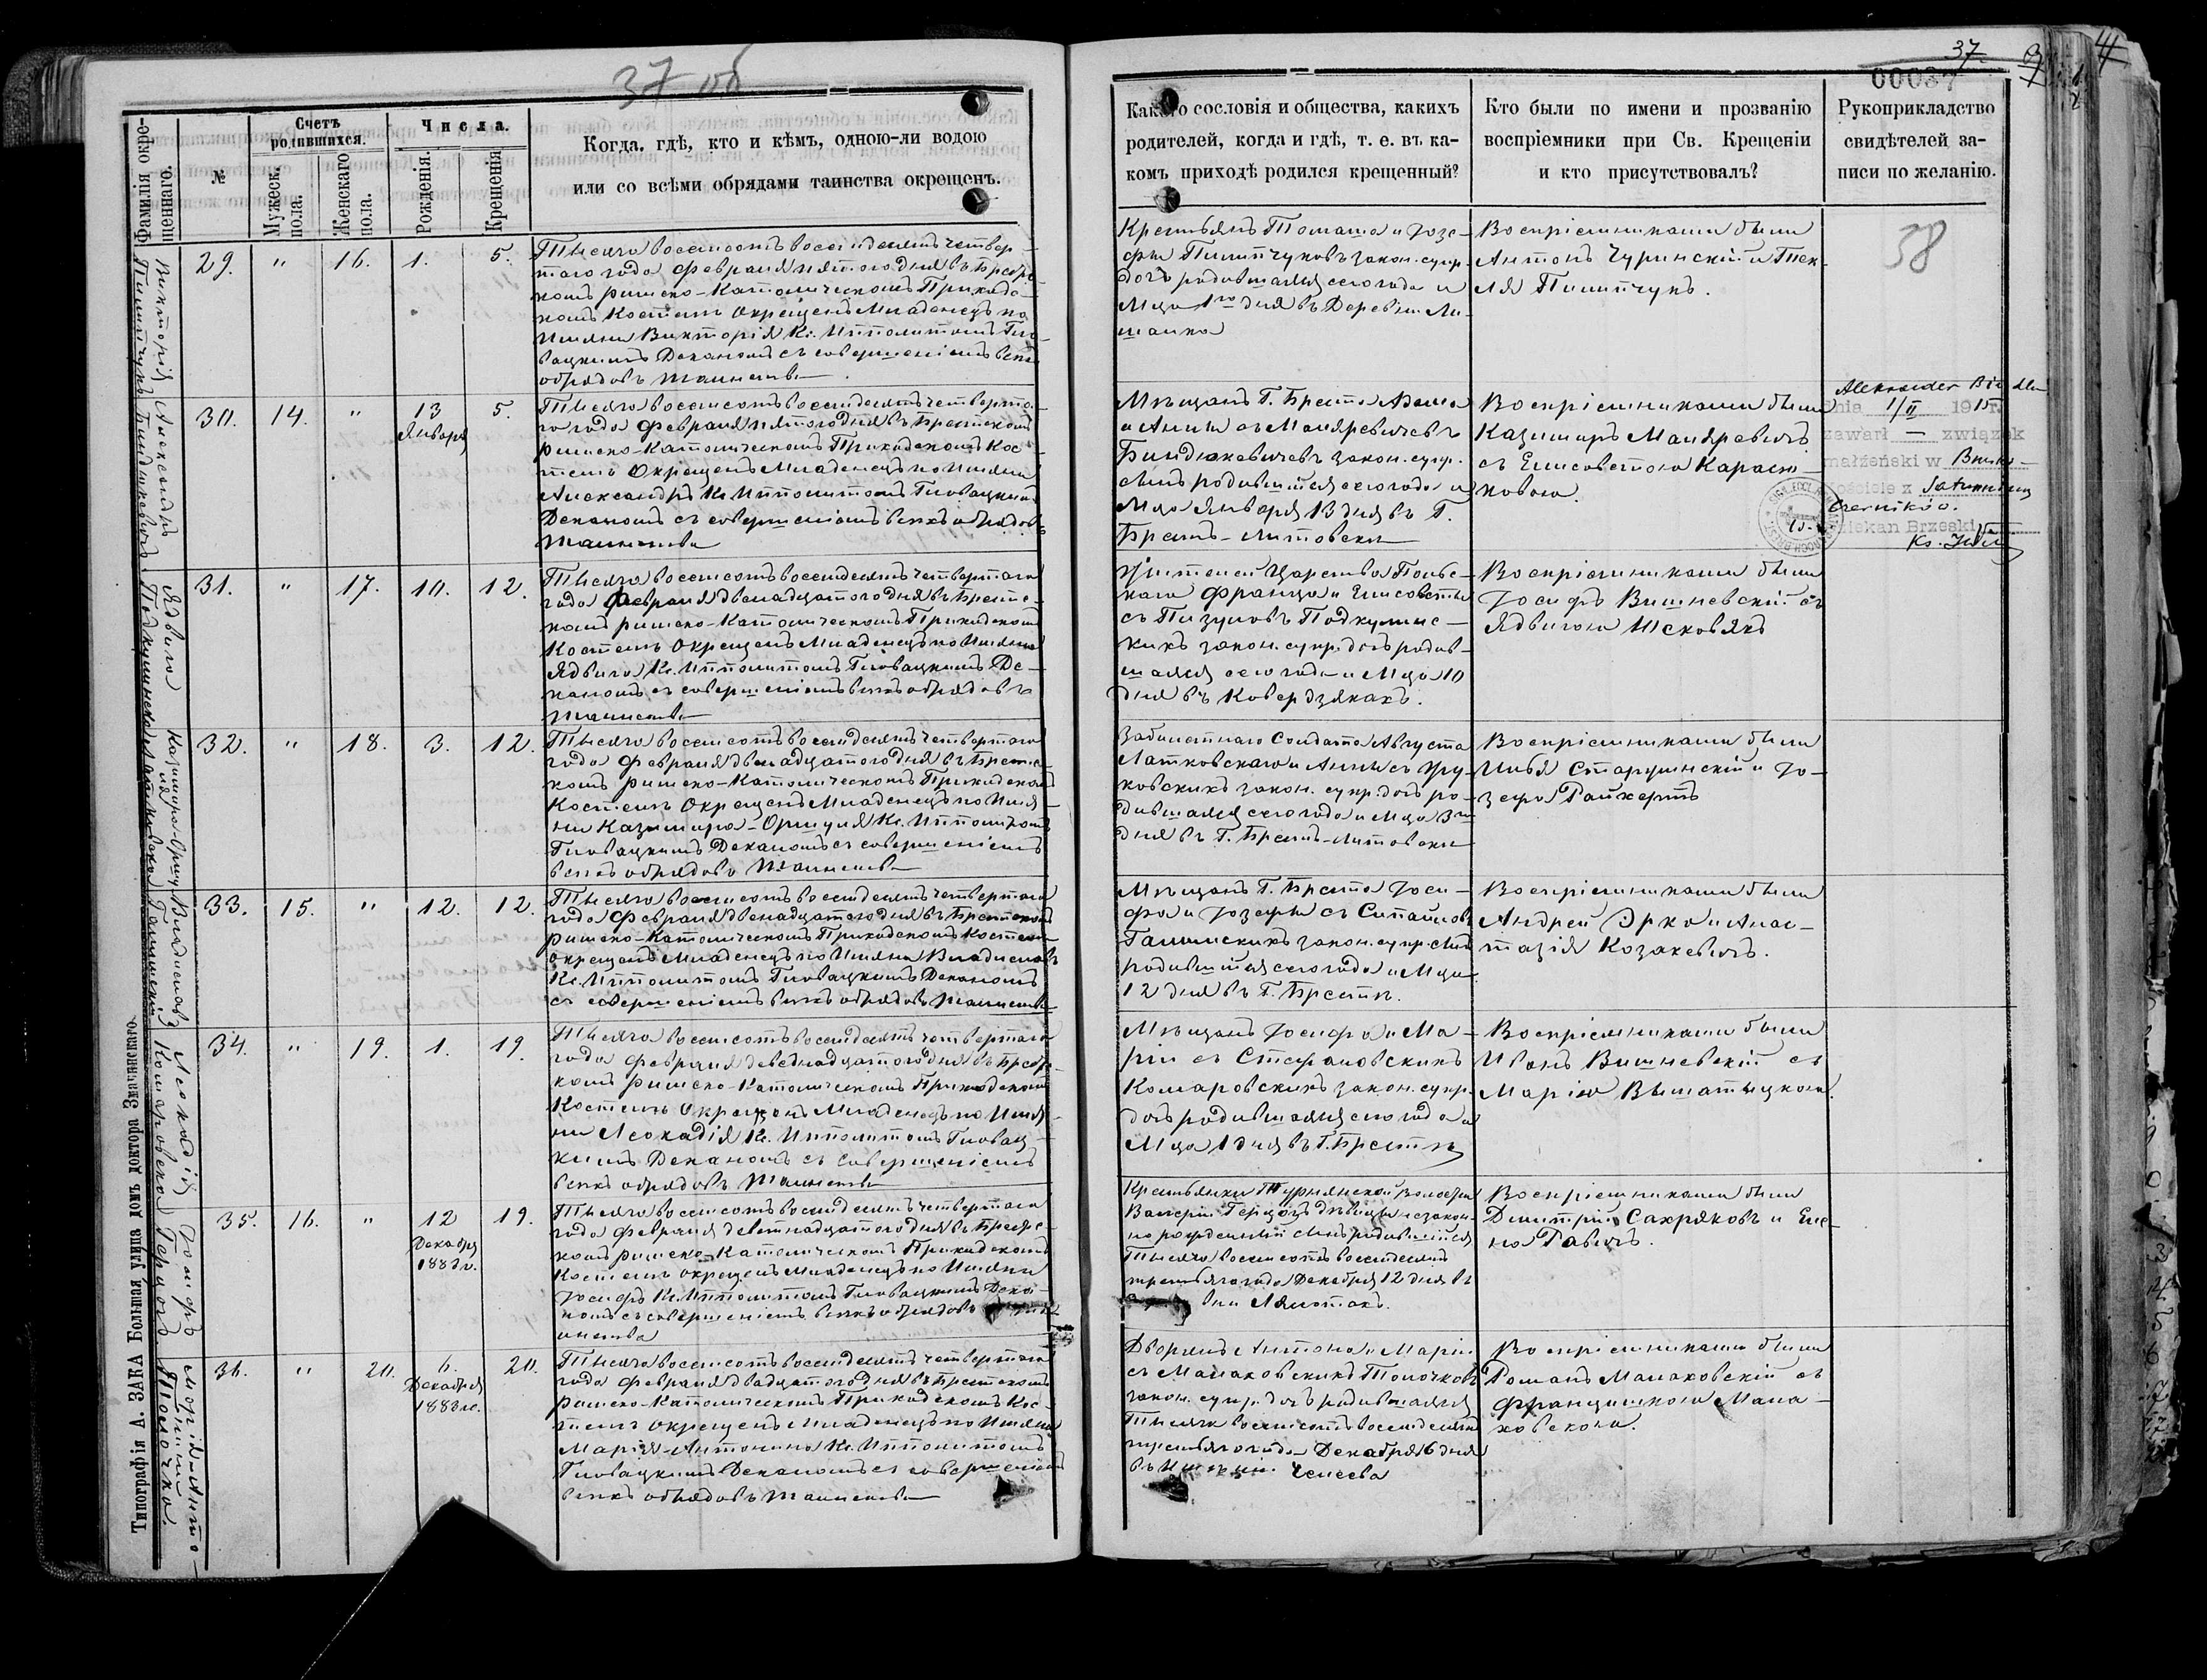 37 об
Фамилія окре-
щеннаго.
№
Счетъ
родившихся.
Мужеск.
пола.
Женскаго
пола.
Числа.
Рожденія.
Крещенія
Когда, гдѣ, кто и кѣмъ, одною-ли водою
или со всѣми обрядами таинства окрещенъ.
Викторія
Пилипчукъ
29. " 16. 1. 5.
Тысяча восемсотъ восемдесятъ четвер-
таго года Февраля пятого дня въ Брест-
комъ римско-Католическомъ Приходс-
комъ Костелѣ Окрещенъ Младенецъ по
Имяни Викторія Кс. Ипполитомъ Гло-
вацкимъ Деканомъ съ совершеніемъ всѣхъ
обрядовъ таинства.
Александръ
30. 14. " 13
Января 5.
Тысяча восемсотъ восемдесятъ четверта-
го года Февраля пятого дня въ Брестскомъ
римско-Католическомъ Приходскомъ Кос-
телѣ Окрещенъ Младенецъ по Имяни
Александръ Кс. Ипполитомъ Гловацкимъ
Деканомъ съ совершеніемъ всѣхъ обрядовъ
Таинства
Ядвига
31. " 17. 10. 12.
Тысяча восемсотъ восемдесятъ четвертаго
года Февраля двенадцатого дня въ Брестс-
комъ римско-Католическомъ Приходскомъ
Костелѣ Окрещенъ Младенецъ по Имяни
Ядвига Кс. Ипполитомъ Гловацкимъ Де-
каномъ съ совершеніемъ всѣхъ обрядовъ
таинства
32. " 18. 3. 12.
Тысяча восемсотъ восемдесятъ четвертаго
года Февраля двенадцатого дня въ Брестс-
комъ римско-Католическомъ Приходскомъ
Костелѣ Окрещенъ Младенецъ по Имя-
ни Казимира-Оршуля Кс. Ипполитомъ
Гловацкимъ Деканомъ съ совершеніемъ
всѣхъ обрядовъ Таинства
Владиславъ
33. 15. " 12. 12.
Тысяча восемсотъ восемдесятъ четвертаго
года Февраля двенадцатого дня въ Брестскомъ
римско-Католическомъ Приходскомъ Костелѣ
окрещенъ Младенецъ по Имяни Владиславъ
Кс. Ипполитомъ Гловацкимъ Деканомъ
съ совершеніемъ всѣхъ обрядовъ таинства
Леокадія
Комаровская
34. " 19. 1. 19.
Тысяча восемсотъ восемдесятъ четвертаго
года Февраля девятнадцатого дня въ Брест-
комъ римско-Католическомъ Приходскомъ
Костелѣ Окрещенъ Младенецъ по Имя-
ни Леокадія Кс. Ипполитомъ Гловац-
кимъ Деканомъ съ совершеніемъ
всѣхъ обрядовъ Таинства
Іосифъ
Герцогъ
35. 16. " 12
Декабря
1883 г. 19.
Тысяча восемсотъ восемдесятъ четвертаго
года Февраля девятнадцатого дня въ Брестс-
комъ римско-Католическомъ Приходскомъ
Костелѣ окрещенъ Младенецъ по Имяни
Іосифъ Кс. Ипполитомъ Гловацкимъ Дека-
номъ съ совершеніемъ всѣхъ обрядовъ
Марія-Анто-
нина
Толочко.
36. " 20. 6.
Декабря
1883 г. 20.
Тысяча восемсотъ восемдесятъ четвертаго
года Февраля двадцатого дня въ Брестскомъ
римско-Католическомъ Приходскомъ Кос-
телѣ окрещенъ Младенецъ по Имяни
Марія-Антонина Кс. Ипполитомъ
Гловацкимъ Деканомъ съ совершеніемъ
всѣхъ обрядовъ таинства
Типографія А. ЗАКА Большая улица домъ доктора
37
00037
Какого сословія и общества, какихъ
родителей, когда и гдѣ, т. е. въ ка-
комъ приходѣ родился крещенный?
Кто были по имени и прозванію
воспріемники при Св. Крещеніи
и кто присутствовалъ?
Рукоприкладство
свидѣтелей за-
писи по желанію.
38
Крестьянъ Томаша и Юзе-
фы Пилипчуковъ закон. супр.
дочь родившаяся сего года и
М-ца 1го дня въ Деревнѣ
Воспріемниками были
Антонъ Чуринскій и Тек-
ля Пилипчукъ.
Мѣщанъ Г. Бреста Адама
и Анны съ Маляревичевъ
Биндюкевичевъ закон. супр.
сынъ родившійся сего года и
М-ца Января 13 дня въ Г.
Брестъ-Литовскѣ
Воспріемниками были
Казимиръ Маляревичъ
съ Елисаветою Карасю-
ковою.
Aleksander
dnia 1/II 1915 r.
zawarł — związek
małżeński w
kościele z Saturniną
Czerników.
Dziekan Brzeski
Ks.
Жителей Царства Польс-
каго Франца и Елисаветы
съ Пизуновъ Подкулинс-
кихъ закон. супр. дочь родив-
шаяся сего года и М-ца 10
дня въ Ковердзякахъ.
Воспріемниками были
Іосифъ Вишневскій съ
Ядвигою
Забилетнаго Солдата Августа
Латковскаго и Анны съ
ковскихъ закон. супр. дочь ро-
дившаяся сего года и М-ца 3го
дня въ Г. Брестъ-Литовскѣ
Воспріемниками были
Илья Старушинскій и Ю-
зефа Райхертъ
Мѣщанъ Г. Бреста Іоси-
фа и Юзефы съ
закон. супр. сынъ
родившійся сего года и М-ца
12 дня въ Г. Брестѣ.
Воспріемниками были
Андрей Эрко и Анас-
тазія Козакевичъ.
Мѣщанъ Іосифа и Ма-
ріи съ Стефановскихъ
Комаровскихъ закон. супр.
дочь родившаяся сего года и
М-ца 1 дня въ Г. Брестѣ
Воспріемниками были
Иванъ Вишневскій съ
Маріею
Крестьянки Турнянской волости
Валеріи Герцогъ дѣвицы незакон-
но рожденный сынъ родившійся
Тысяча восемсотъ восемдесятъ
третьяго года Декабря 12 дня въ
Воспріемниками были
Дмитрій Сахряковъ и Еле-
на
Дворянъ Антона и Маріи
съ Малаховскихъ Толочковъ
закон. супр. дочь родившаяся
Тысяча восемсотъ восемдесятъ
третьяго года Декабря 6 дня
Воспріемниками были
Романъ Малаховскій съ
Францишкою Мала-
ховскою.